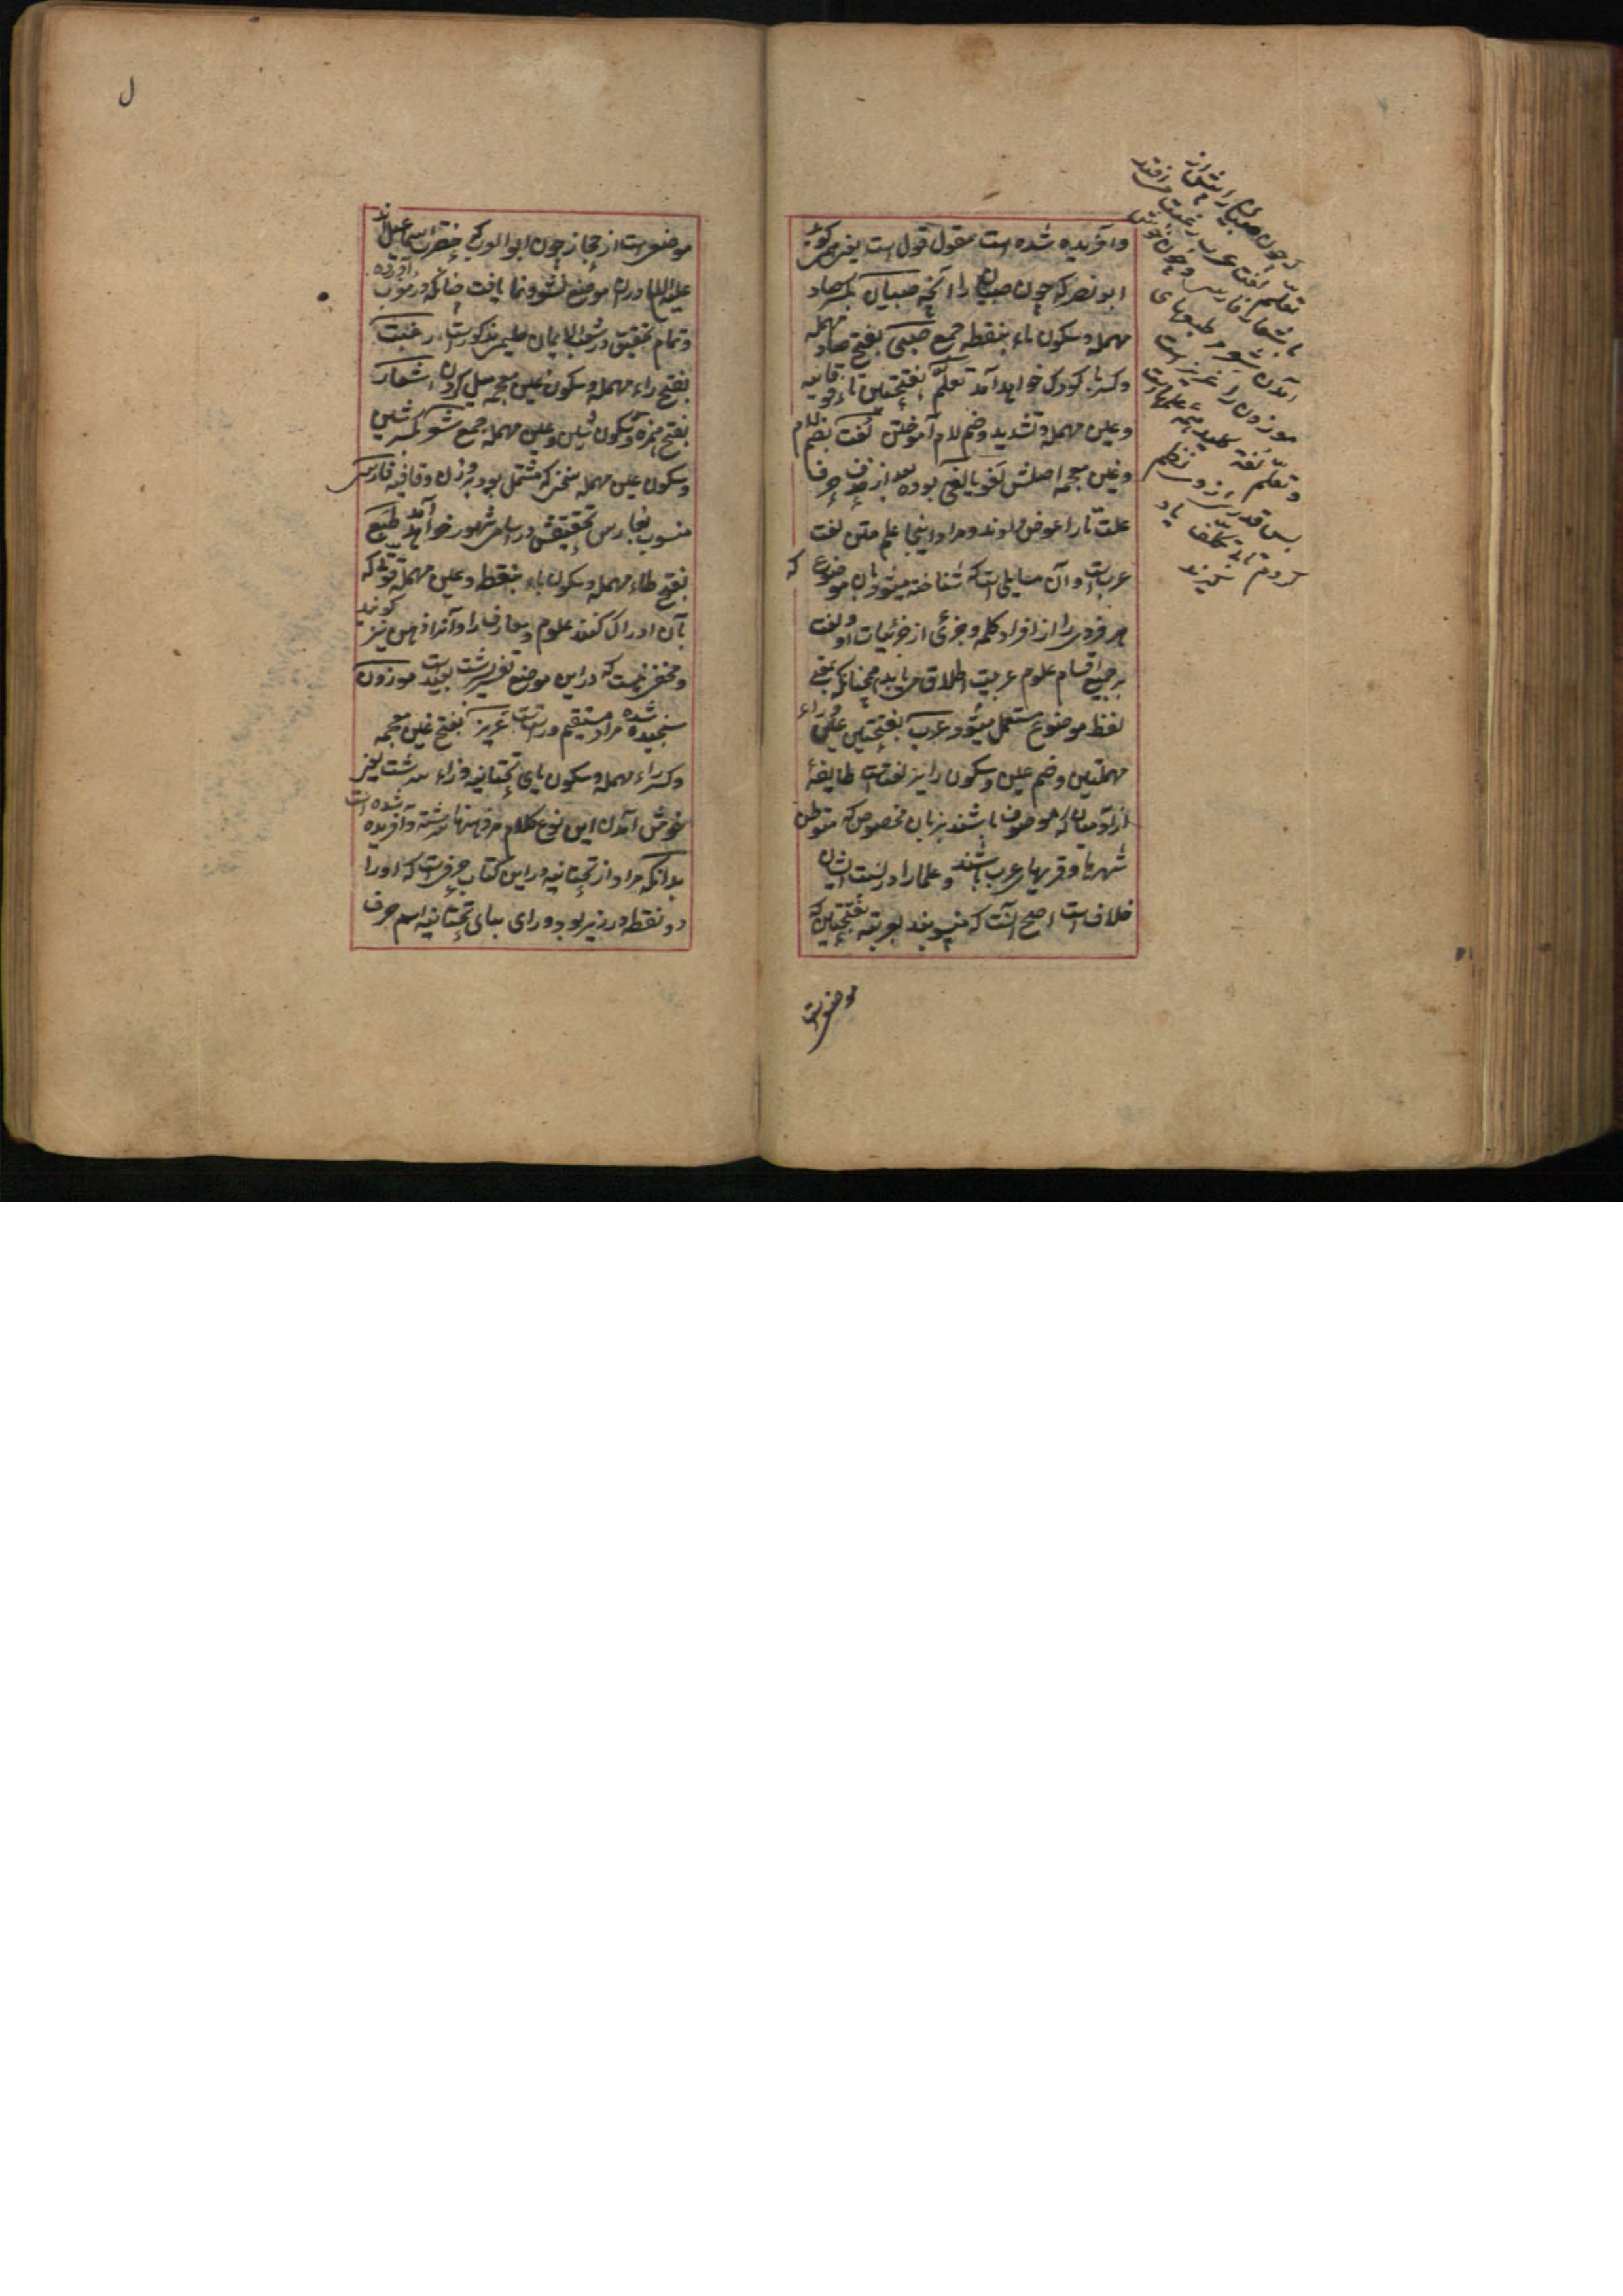 وآفریده شده است مقول قول است یعنی میکوید
ابو نصر که چون صبیان را آنچه صبیان بکسر صاد
مهمله و سکون باء بنقطه جمع صبی بفتح صاد مهمله
وکسر با کودک خواهد آمد تعلّم بفتحتین تا فوقانیه
وعین مهمله و تشدید و ضم لام آموختن لغت بضم لام
وغین معجمه اصلش لغو یا لغی بوده بعد از حذف حرف
علت تا را عوض دادند و مراد اینجا علم متن لغت
عرب است و آن مسایلی است که شناخته میشود بآن موضوع که
هر فردی را از افراد کلمه و جزئی از جزئیات او و لغت
بر جمیع اقسام علوم عربیت اطلاق می یابد همچنانکه بمعنی
لفظ موضوع مستعمل میشود عرب بفتحتین عین و راء
مهملتین و ضم عین و سکون را نیز لغتست طایفهٔ
از آدمیان که موصوف باشند بزبان مخصوص که متوطن
شهرها و قریهای عرب باشند و علما را در نسبت ایشان
خلاف است اصح آنست که منسوبند بعربه بفتحتین که
موضعی است
چون صبیان را پیش از
تعلّم لغت عرب رغبت می افتد
باشعار فارسی و چون خوش
آمدن شعر و طبعهای
موزون را غریزی است
وتعلّم لغة کلید همه علمهاست
بس قدری از و نظم
کردم تا بی تکلّف یاد
کیرند
ل
موضعی است از حجاز چون ابو العرب حضرت اسماعیل
علیه السلام دران موضع نشو و نما یافت چنانکه در مغرب آورده اند
وتمام تحقیق در شعب الایمان حلیمی مذکورست رغبت
بفتح راء مهمله و سکون غین معجمه میل کردن اشعار
بفتح همزه و سکون شین و عین مهمله جمع شعر بکسر شین
وسکون عین مهمله سخنی که مشتمل بود بر وزن و قافیه فارسی
منسوب بفارس تحقیقش در اسامی شهور خواهد آمد طبع
بفتح طاء مهمله و سکون باء بنقطه و عین مهمله قوتی که
بآن ادراک کنند علوم و معارف را و آنرا ذهن نیز کویند
ومخفی نیست که در این موضع تفسیر سرشت بعیدست موزون
سنجیده شده مراد مستقیم و راست است غریزی بفتح غین معجمه
وکسر راء مهمله و سکون یای تحتانیه و زاء سرشت یعنی
خوش آمدن این نوع کلام در ذهنها سرشته و آفریده شده است
بدانکه مراد از تحتانیه در این کتاب حرفی است که او را
دو نقطه در زیر بود و رای بیای تحتانیه اسم حرف